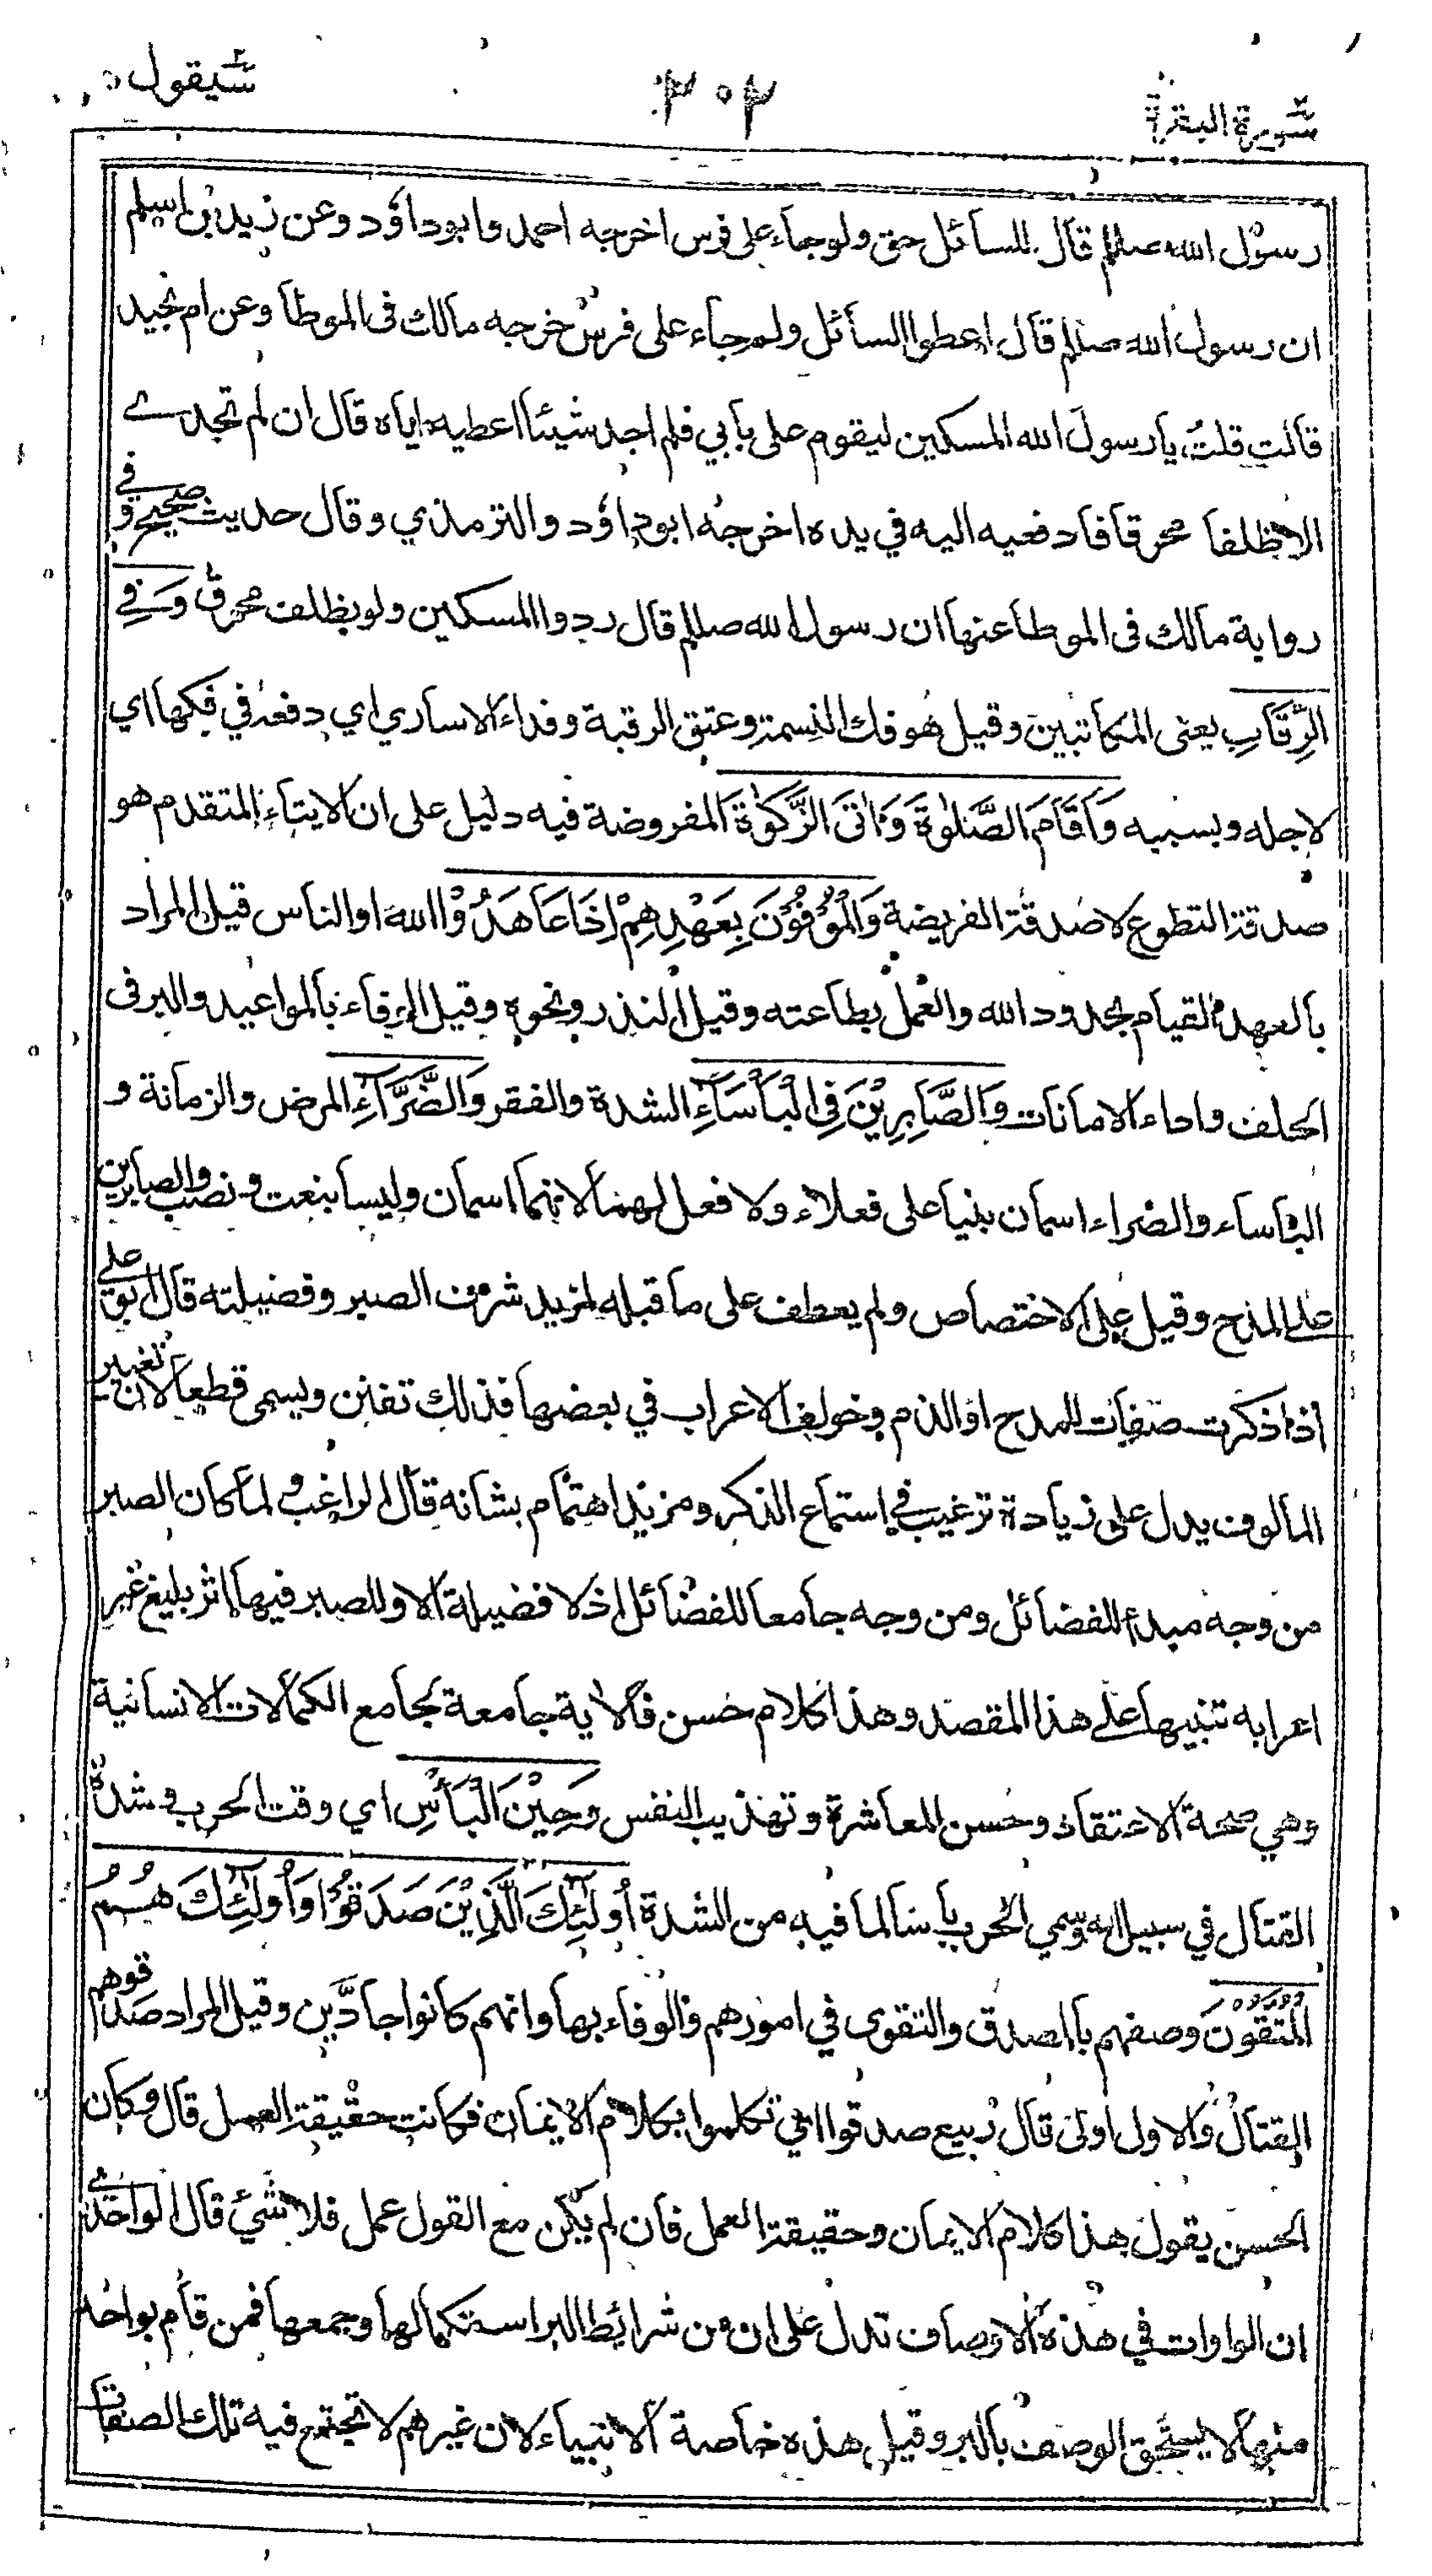 سورة البقرة
٣٠٢
سيقول٢
رسول الله صللم قال للسائل حق ولو جاء على فرس اخرجه احمد وابوداؤد وعن زيد بن اسلم
ان رسول الله صللم قال اعطوا السائل ولو جاء على فرس خرجه مالك فى الموطأ وعن ام نجيد
قالت قلت يا رسول الله المسكين ليقوم على بابي فلم اجد شيئا اعطيه اياه قال ان لم تجدے
الا ظلفا محرقا فادفعيه اليه في يده اخرجه ابوداؤد والترمذي وقال حديث صحيح وفے
رواية مالك فى الموطأ عنها ان رسول الله صللم قال ردوا المسكين ولو بظلف محرق وَفِے
الرِّقَابِ يعنى المكاتبين وقيل هو فك النسمة وعتق الرقبة وفداء الاسارى اي دفعه في فكها اي
لاجله وبسببه وَأَقَامَ الصَّلوٰةَ وَاٰتَى الزَّكوٰةَ المفروضة فيه دليل على ان الايتاء المتقدم هو
صدقة التطوع لا صدقة الفريضة وَالْمُوْفُوْنَ بِعَهْدِهِمْ اِذَا عَاهَدُوْا الله او الناس قيل المراد
بالعهد القيام بحدود الله والعمل بطاعته وقيل النذر ونحوه وقيل الوفاء بالمواعيد والبر فى
الحلف واداء الامانات وَالصَّابِرِيْنَ فِى الْبَأْسَآءِ الشدة والفقر وَالضَّرَّآءِ المرض والزمانة و
البأساء والضراء اسمان بنيا على فعلاء ولا فعل لهما لانهما اسمان وليسا بنعت ونصب والصابرين
على المدح وقيل على الاختصاص ولم يعطف على ما قبله لمزيد شرف الصبر وفضيلته قال ابو علے
اذا ذكرت صفات للمدح او الذم وخولف الاعراب في بعضها فذلك تفنن ويسمى قطعا لان تغيير
المالوف يدل على زيادة ترغيب فے استماع الذكر ومزيد اهتمام بشانه قال الراغب ولما كان الصبر
من وجه مبدء للفضائل ومن وجه جامعا للفضائل اذ لا فضيلة الا وللصبر فيها اثر بليغ غير
اعرابه تنبيها علے هذا المقصد وهذا كلام حسن فالاية جامعة لجامع الكمالات الانسانية
وهي صحة الاعتقاد وحسن المعاشرة وتهذيب النفس وَحِيْنَ الْبَأْسِ اي وقت الحرب وشدة
القتال في سبيل الله وسمي الحرب باسا لما فيه من الشدة أُولٰٓئِكَ الَّذِيْنَ صَدَقُوْا وَأُولٰٓئِكَ هُمُ
الْمُتَّقُوْنَ وصفهم بالصدق والتقوى في امورهم والوفاء بها وانهم كانوا جادّين وقيل المراد صدقوهم
القتال والاول اولى قال ربيع صدقوا اي تكلموا بكلام الايمان فكانت حقيقة العمل قال وكان
الحسن يقول هذا كلام الايمان وحقيقة العمل فان لم يكن مع القول عمل فلا شئ قال الواحدے
ان الواوات في هذه الاوصاف تدل على ان من شرائط البر استكمالها وجمعها فمن قام بواحد
منها لا يستحق الوصف بالبر وقيل هذه خاصة الانبياء لان غيرهم لا تجتمع فيه تلك الصفات